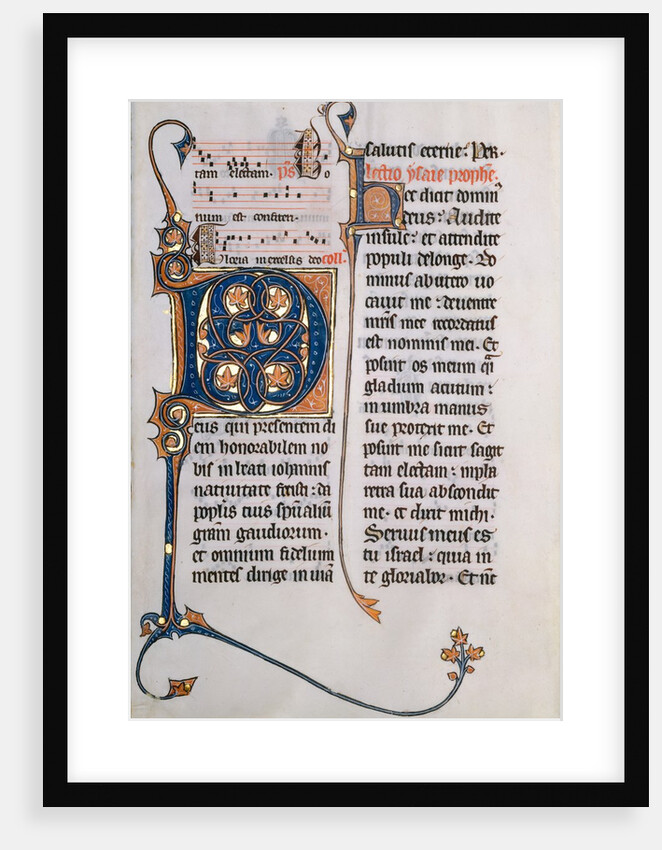 tam electam. p̄s Bo
num est confiteri.
Gloria in excelsis deo coll̄.
Deus qui presentem di
em honorabilem no
bis in beati iohannis
natiuitate fecisti: da
populis tuis sp̄ualiū
gr̄am gaudiorum.
et omnium fidelium
mentes dirige in uiā
salutis eterne: Per.
lectio ysaie prophe.
Hec dicit domin̄
deus: Audite
insule: et attendite
populi de longe. Do
minus ab utero uo
cauit me: de uentre
mr̄is mee recordatus
est nominis mei. Et
posuit os meum qā̄i
gladium acutum:
in umbra manus
sue protexit me. Et
posuit me sicut sagit
tam electam: in pha
retra sua abscondit
me. et dixit michi.
Seruus meus es
tu israel: quia in
te gloriabor. Et nc̄